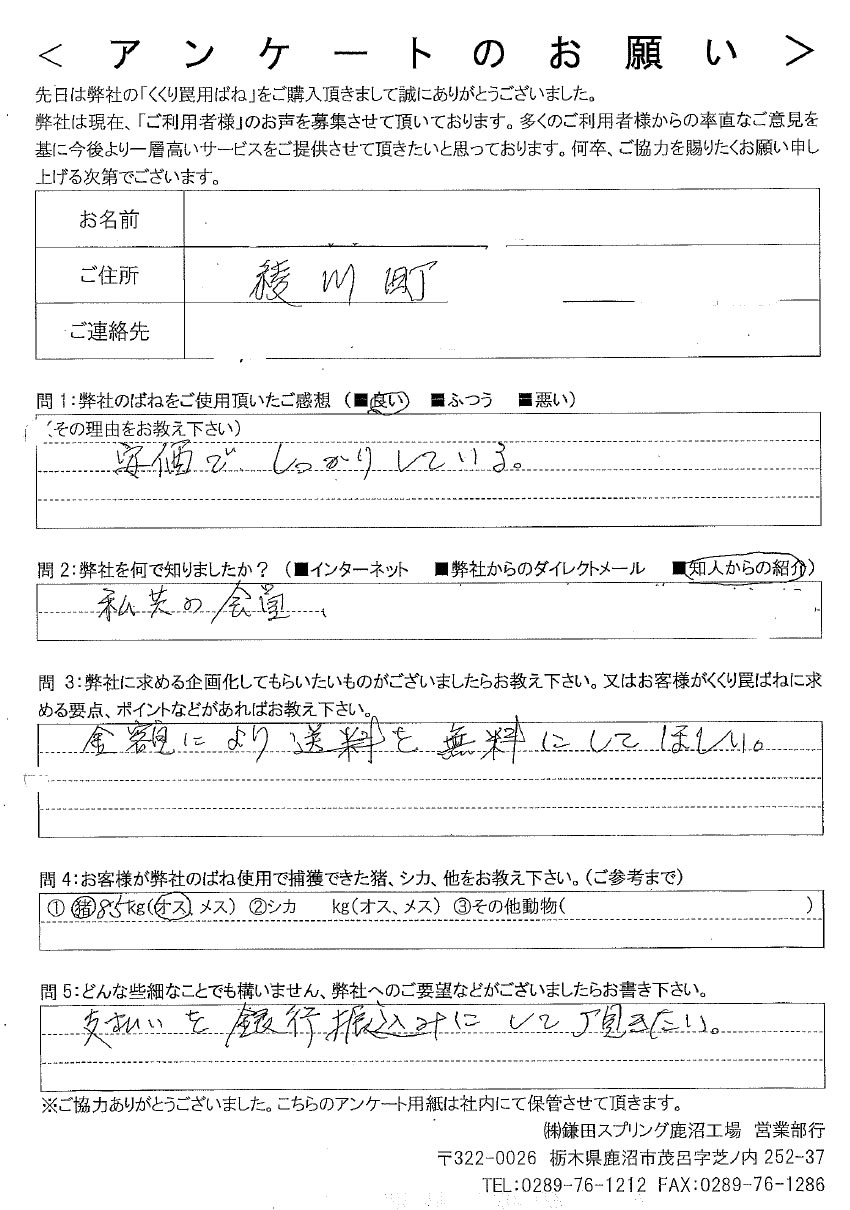 ＜アンケートのお願い＞
先日は弊社の「くくり罠用ばね」をご購入頂きまして誠にありがとうございました。
弊社は現在、「ご利用者様」のお声を募集させて頂いております。多くのご利用者様からの率直なご意見を
基に今後より一層高いサービスをご提供させて頂きたいと思っております。何卒、ご協力を賜りたくお願い申し
上げる次第でございます。
お名前
ご住所 綾川町
ご連絡先
問1:弊社のばねをご使用頂いたご感想 (■良い ■ふつう ■悪い)
(その理由をお教え下さい)
安価で、しっかりしている。
問2:弊社を何で知りましたか? (■インターネット ■弊社からのダイレクトメール ■知人からの紹介)
私共の会員、
問 3:弊社に求める企画化してもらいたいものがございましたらお教え下さい。又はお客様がくくり罠ばねに求
める要点、ポイントなどがあればお教え下さい。
金額により送料を無料にしてほしい。
問4:お客様が弊社のばね使用で捕獲できた猪、シカ、他をお教え下さい。(ご参考まで)
①猪85kg(オス、メス) ②シカ kg(オス、メス) ③その他動物( )
問5:どんな些細なことでも構いません、弊社へのご要望などがございましたらお書き下さい。
支払いを銀行振込みにして頂きたい。
※ご協力ありがとうございました。こちらのアンケート用紙は社内にて保管させて頂きます。
㈱鎌田スプリング鹿沼工場 営業部行
〒322-0026 栃木県鹿沼市茂呂字芝ノ内 252-37
TEL:0289-76-1212 FAX:0289-76-1286